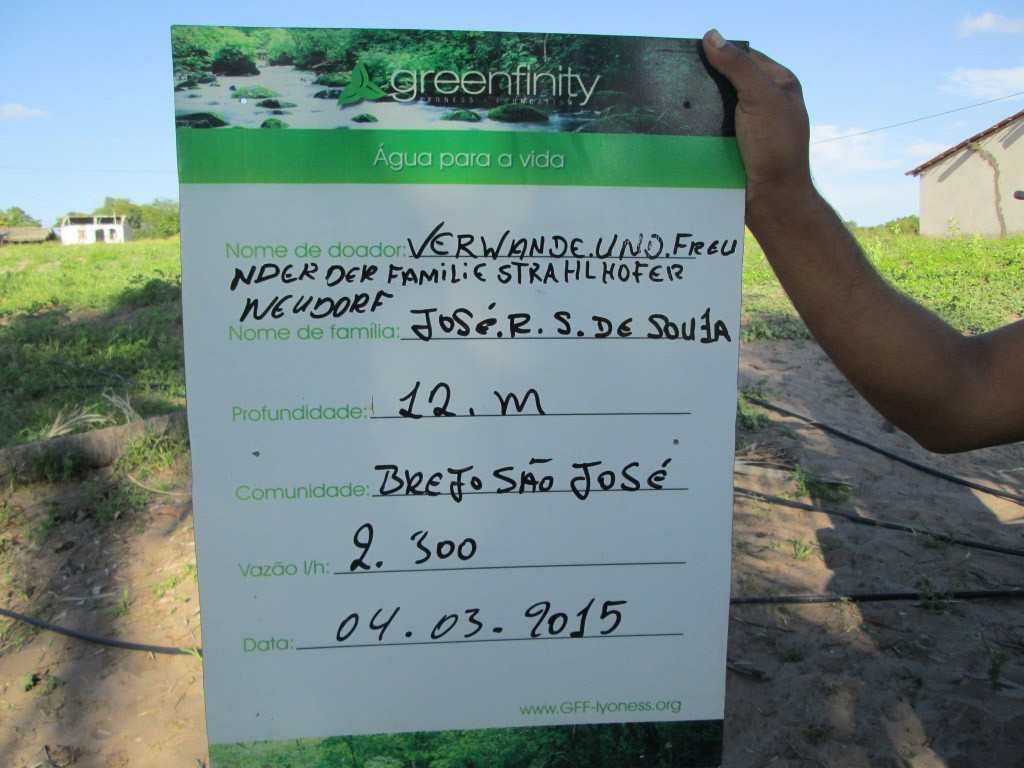 greenfinity
LYONESS FOUNDATION
Água para a vida
Nome de doador: VERWANDE.UND.FREU
NDER DER FAMILIE STRAHLHOFER
NEUDORF
Nome de família: JOSÉ.R.S.DE SOUZA
Profundidade: 12.m
Comunidade: BREJO SÃO JOSÉ
Vazão l/h: 2.300
Data: 04.03.2015
www.GFF-lyoness.org